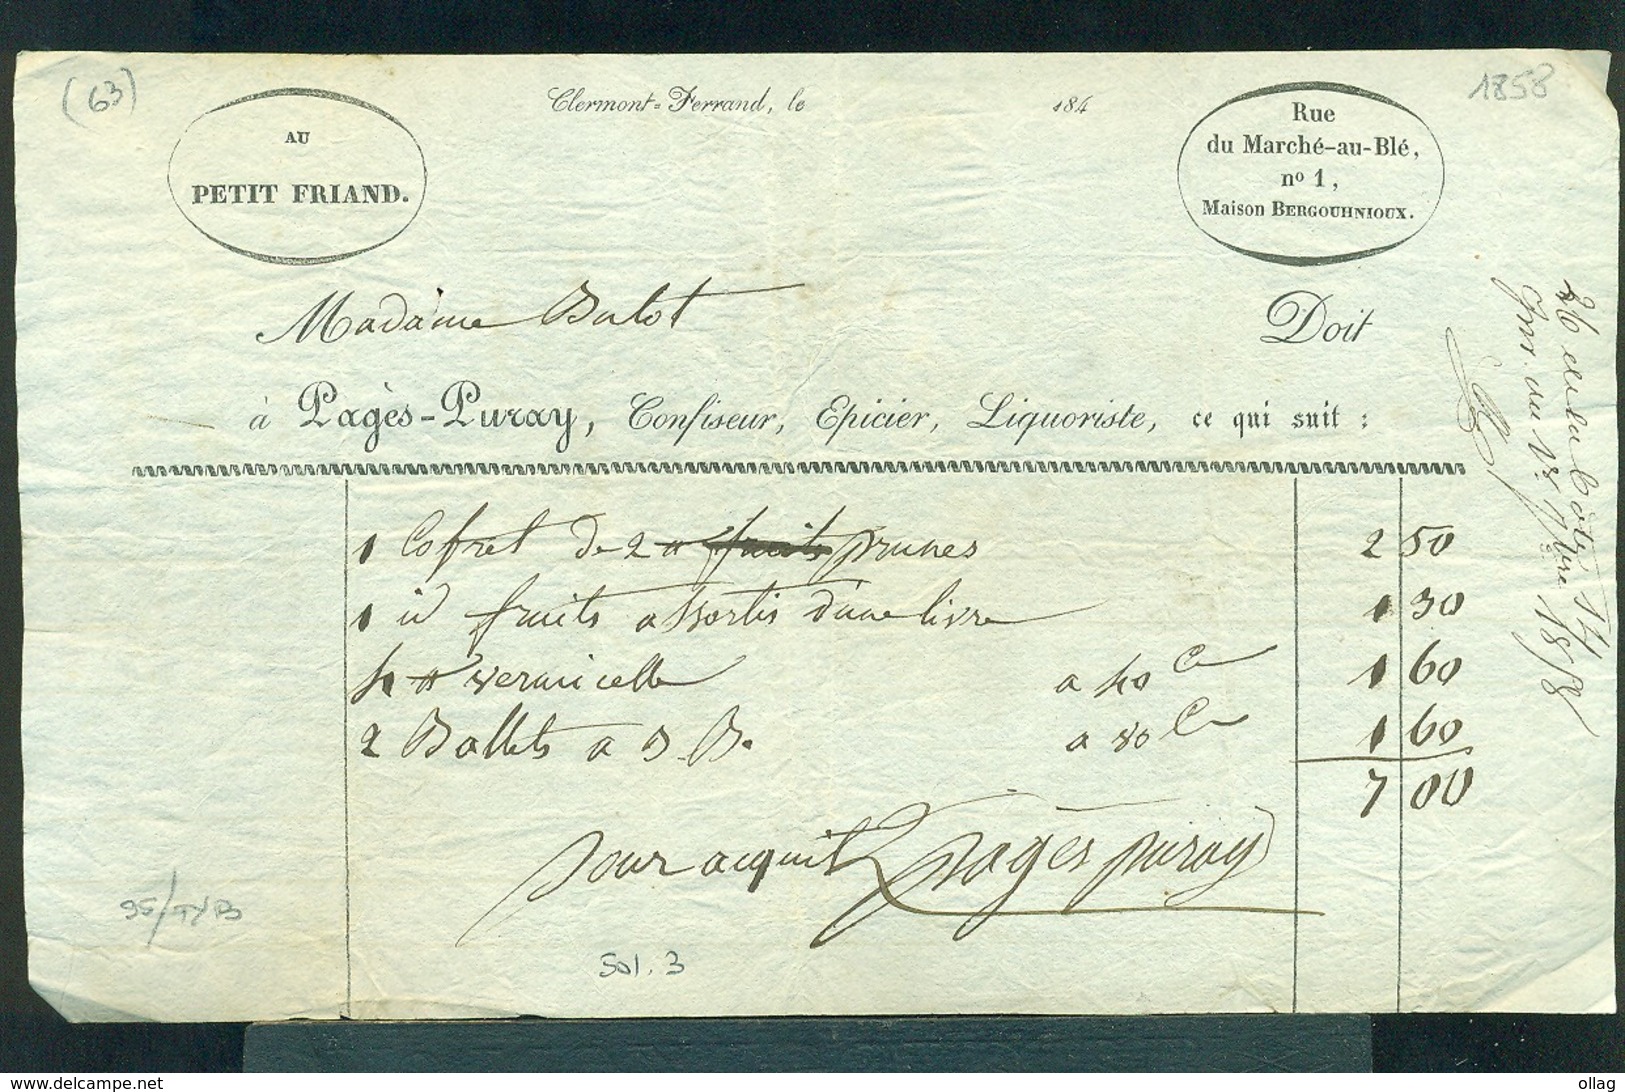 (63)
1858
AU
PETIT FRIAND.
Clermont-Ferrand, le 184
Rue
du Marché-au-Blé,
nº 1,
Maison BERGOUHNIOUX.
Madame Balot Doit
à Pagès-Puray, Confiseur, Epicier, Liquoriste, ce qui suit :
1 Cofret de 2 # fruits prunes 2 50
1 id fruits assortis d'une livre 1 30
4 # vermicelle a 40 C 1 60
2 Ballets a 3 B. a 80 C 1 60
7 00
pour acquit Pagès puray
95/TYB
Sol. 3
du 1er 1858
www.delcampe.net
ollag